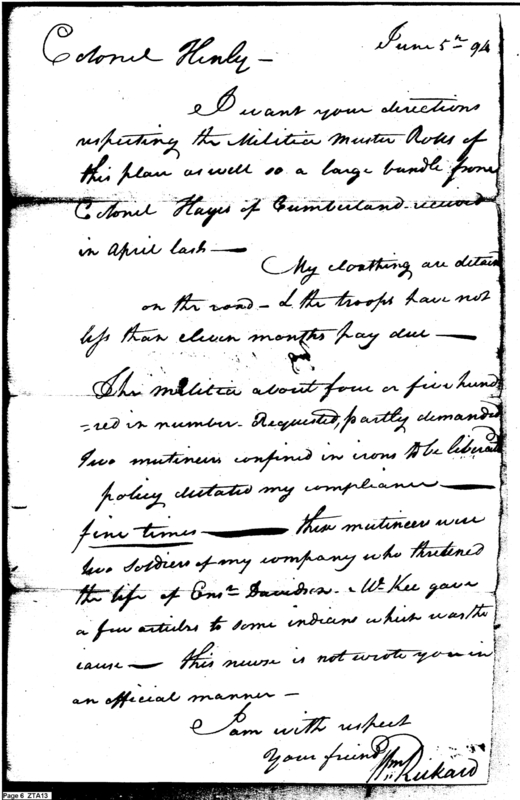 June 5th 94
Colonel Henly —
I want your directions
respecting the Militia Muster Rolls of
this place as well so a large bundle from
Colonel Hayes of Cumberland received
in April last —
My cloathing are detain
on the road — & the troops have not
less than eleven months pay due —
The militia about four or five hund
=red in number. Requested, partly demanded
two mutineers confined in irons to be liberated
policy dictated my compliance —
fine times — these mutineers were
two soldiers of my company who thretened
the life of Ensn Davidson. Mc Kee gave
a few articles to some indians which was the
cause — this newse is not wrote you in
an official manner —
I am with respect
Your friend
Wm Rickard
Page 6 ZTA13